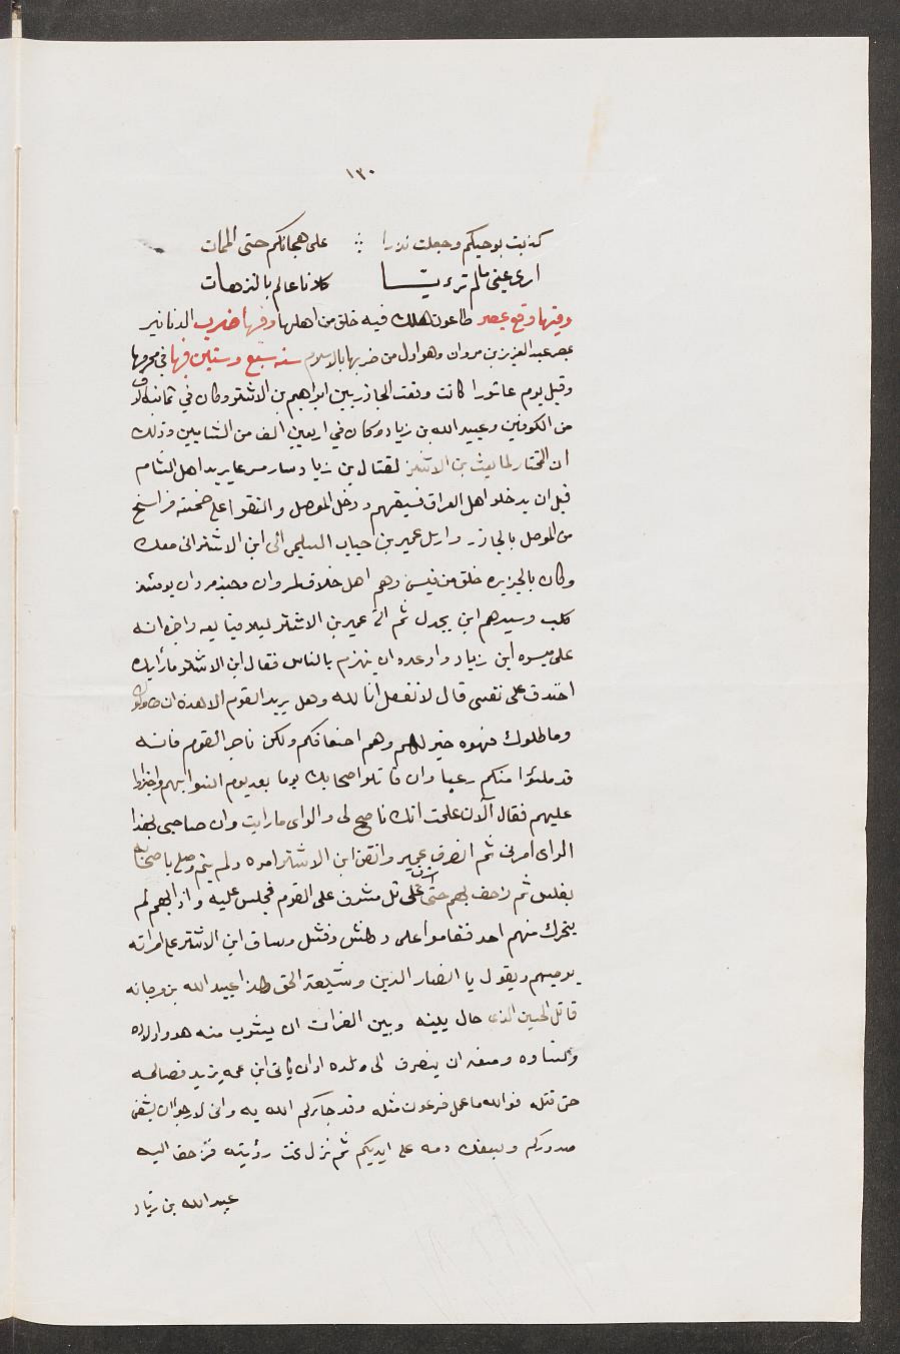 ١٣٠
كذبت بوحيكم وجعلت نذرا ∴ على هجائكم حتى الممات
ارى عينى مالم ترءيتا كلانا عالم بالترهات
وفيها وقع بمصر طاعون هلك فيه خلق من اهلها وفيها ضرب الدنانير
بمصر عبد العزيز بن مروان وهو اول من ضربها بالاسلام سنه سبع وستين فيها في محرمها
وقيل يوم عاشورا كانت وقعت الجازر بين ابراهيم بن الاشتر وكان في ثمانية الاف
من الكوفيين وعبيد الله بن زياد وكان في اربعين الف من الشاميين وذلك
ان المختار لما بعث بن الاشتر لقتال بن زياد سار مسرعا يريد اهل الشام
قبل ان يدخلو اهل العراق فسبقهم ودخل الموصل والتقوا على خمسة فراسخ
من الموصل بالجازر وارسل عمير بن حباب السلمى الى ابن الاشتر انى معك
وكان بالجزيره خلق من قيس وهم اهل خلاف لمروان وجند مروان يومئذ
كلب وسيدهم ابن بجدل ثم اتى عمير بن الاشتر ليلا فبايعه واخبره انه
على ميسره ابن زياد واوعده ان ينهزم بالناس فقال ابن الاشتر ما رأيك
اخندق على نفسى قال لا تفعل انا لله وهل يريد القوم الا هذه ان طاولوك
وما طلوك فهوه خير لهم وهم اضعافكم ولكن ناجز القوم فانه
قد ملئوا منكم رعبا وان قاتلوا صحابك يوما بعد يوم انسوا بهم واجتراوا
عليهم فقال الآن علمت انك ناصح لى والراى ما رايت وان صاحبى بهذا
الراى امرنى ثم انصرف عمير واتقن ابن الاشتر امره ولم ينم وصلى باصحابه
بغلس ثم زحف بهم حتى اشرف على تل مشرف على القوم فجلس عليه واذا بهم لم
يتحرك منهم احد فقاموا على دهش وفشل وساق ابن الاشتر على امراته
يوصيهم ويقول يا انصار الدين وشيعة الحق هذا عبيد الله بن مرجانه
قاتل الحسين الذى حال بينه وبين الفرات ان يشرب منه هو واولاده
ونساوه ومنعه ان ينصرف الى بلده او ان ياتى ابن عمه يزيد فصالحه
حتى قتله فوالله ما عمل فرعون مثله وقد جاركم الله به وانى لارجوا ان يشفى
صدوركم ويسفك دمه على ايديكم ثم نزل تحت رؤيته فزحف اليه
عبيد الله بن زياد